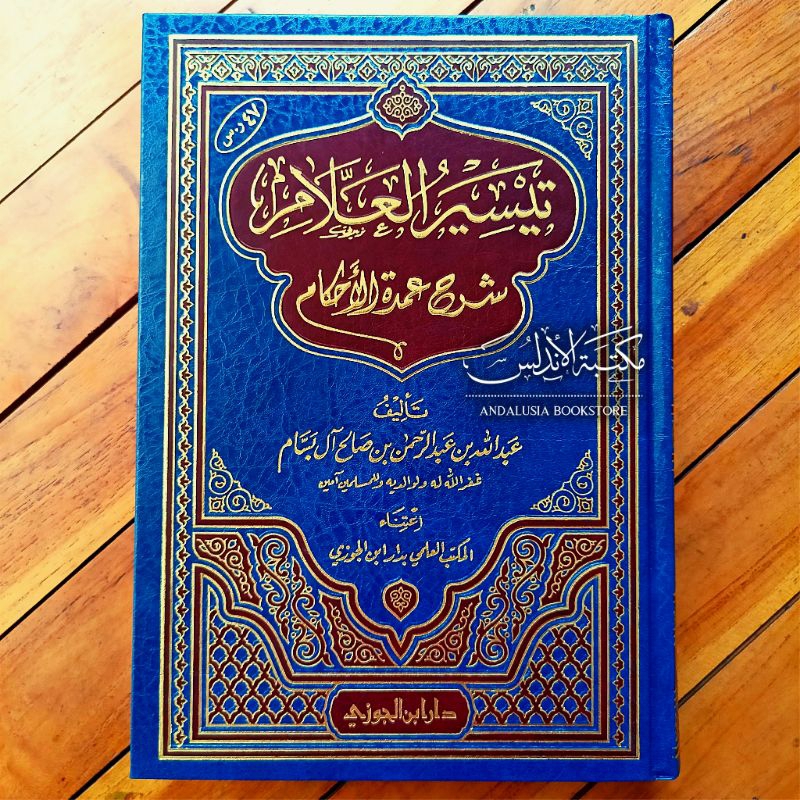 ٤٧ ر.س
تَيْسِيرُ العَلَّامِ
شرح عمدة الأحكام
مكتبة الأندلس
ANDALUSIA BOOKSTORE
تَأليفُ
عَبدالله بن عَبدالرَّحمٰن بن صَالح آل بَسَّام
غفر الله له ولوالديه وللمسلمين آمين
اعْتِنَاء
المكتب العلمي بدار ابن الجوزي
دار ابن الجوزي